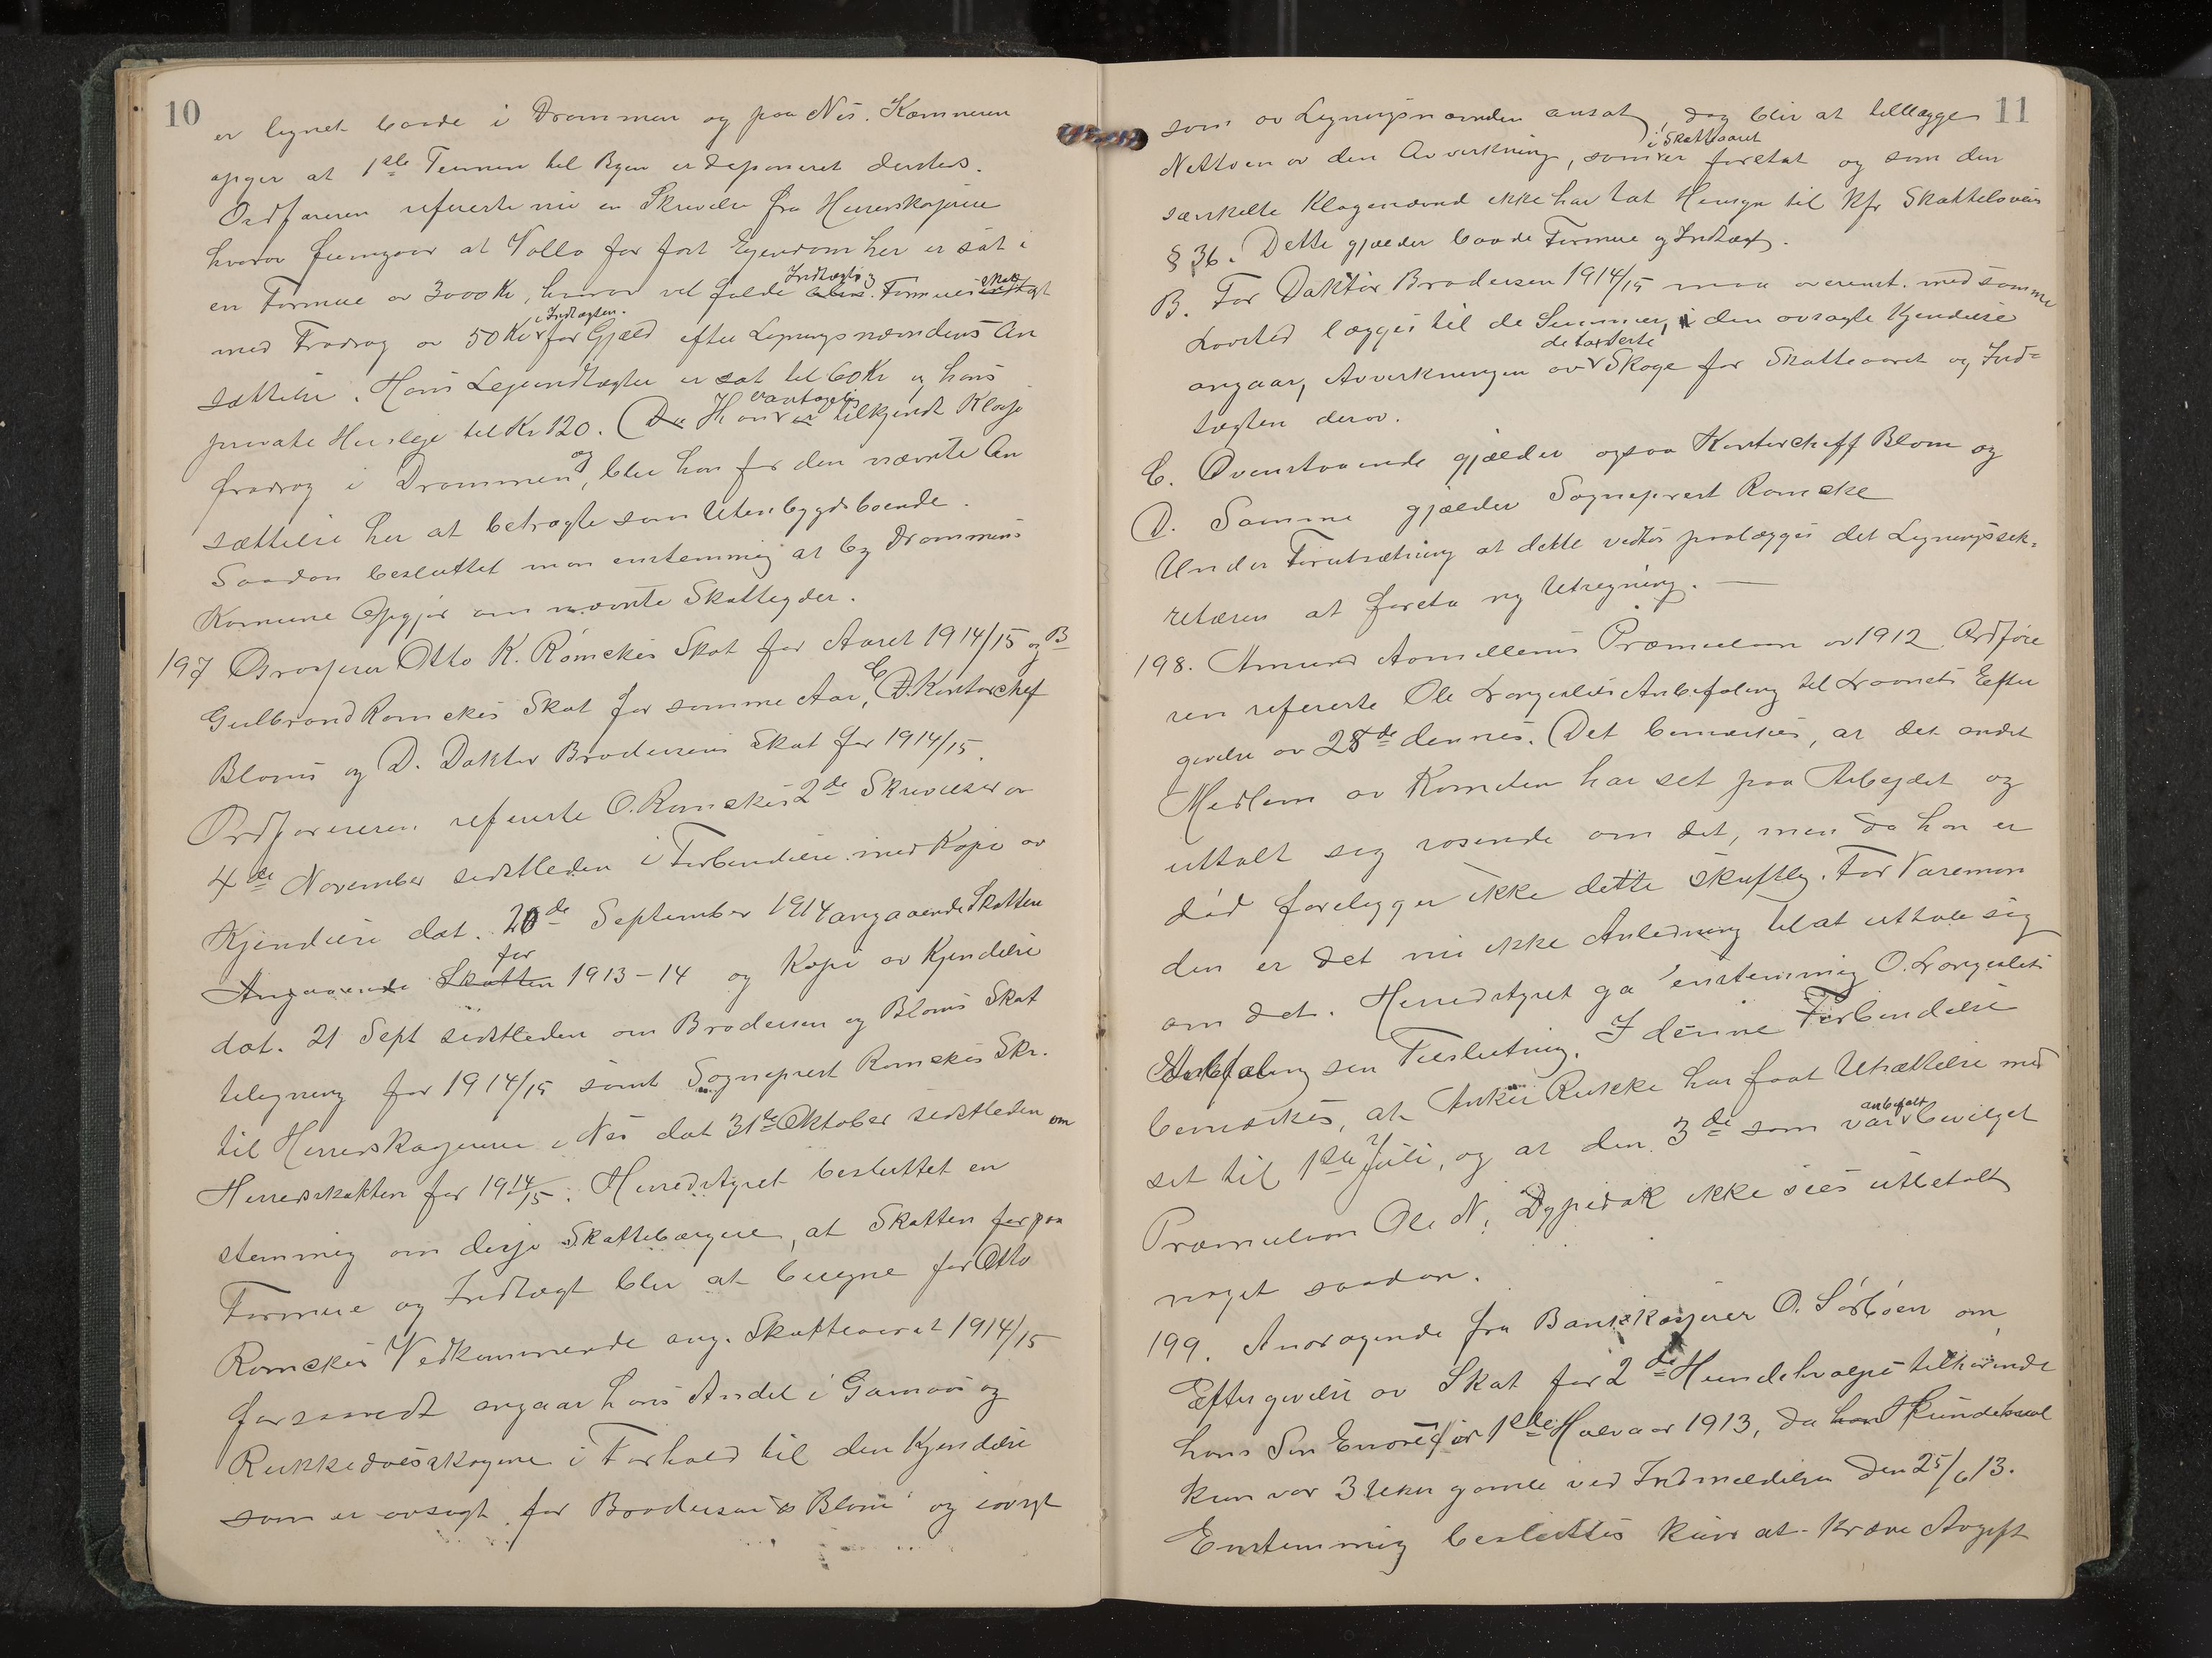 10
er lignet baade i Drammen og paa Nes. Kæmneren
opgir at 1ste Termin til Byen er deponeret dersteds.
Ordføreren refererte nu en Skrivelse fra Herredskasserer
hvorav fremgaar at Volla for fast Ejendom her er sat i
en Formue av 3000 Kr, hvorav vil falde Indtægts og Formuesskat
med Fradrag av 50 Kr i Indtægten for Gjæld efter Ligningsnævndens An
sættelse. Hans Lejeindtægter er sat til 60 Kr og hans
private Husleje til Kr 120. (Da Han er tilkjendt Klasse
fradrag i Drammen, og blir han for den nævnte An
sættelse her at betragte som Utenbygdsboende.
Saadan besluttet man enstemmig at by Drammens
Komune Opgjør om nævnte Skatteyder.
197 Grosserer Otto K. Römckes Skat for Aaret 1914/15 og B
Gulbrand Romckes Skat for samme Aar, C Kontorchef
Bloms og D. Doktor Brodersens Skat for 1914/15.
Ordføreren refererte O. Romckes 2de Skrivelser av
4de November sidstleden i Forbindelse med Kopi av
Kjendelse dat. 20de September 1914 angaaende Skatten
Angaaende Skatten for 1913-14 og Kopi av Kjendelse
dat. 21 Sept sidstleden om Brodersen og Bloms Skat
teligning for 1914/15 samt Sogneprest Romckes Skr.
til Herredskasserer i Nes dat 31te Oktober sidstleden om
Herredsskatten for 1914/15. Herredstyret besluttet en
stemmig om disse Skatteborgere, at Skatten for paa
Formue og Indtægt blir at beregne for Otto
Romckes Vedkommende ang. Skatteaaret 1914/15
forsaavidt angaar hans Andel i Garnaas og
Rukkedalsskogene i Forhold til den Kjendelse
som er avsagt for Brodersen & Blom og iøvrigt
11
som av Ligningsnævnden ansat, dog blir at tillægge
Nettoen av den Avverkning, som i Skatteaaret er foretat og som den
særskilte Klagenævnd ikke har tat Hensyn til kfr Skattelovens
§ 36. Dette gjælder baade Formue og Indtægt.
B. For Doktor Brodersen 1914/15 maa overenst. med samme
Lovsted lægges til de Summer, den avsagte Kjendelse
angaar, Avverkningen av de taxerte Skoge for Skatteaaret og Ind=
tægten derav.
C. Ovenstaaende gjælder ogsaa Kontorcheff Blom og
D. Samme gjælder Sogneprest Romcke
Under Forutsætning at dette vedtas paalægges det Ligningssek=
retæren at foreta ny Utregning. —
198. Amund Aamellems Præmielaan av 1912. Ordføre
ren refererte Ole Langeslets Anbefaling til Laanets Efter
givelse av 28de dennes. (Det bemærkes, at det andet
Medlem av Komiteen har set paa Arbejdet og
uttalt sig rosende om det, men da han er
död foreligger ikke dette skriftlig. For Varaman
den er det nu ikke Anledning til at uttale sig
om det. Herredstyret ga enstemmig O. Langeslets
Anbefaling sin Tilslutning. I denne Forbindelse
bemærkes, at Anker Rukke har faat Utsættelse med
sit til 1ste Juli, og at den 3de som var anbefalt bevilget
Præmielaan Ole N. Dypedok ikke sees utbetalt
noget saadan.
199. Andragende fra Bankkasserer O. Sörböen om
Eftergivelse av Skat for 2de Hundehvalpe tilhørende
hans Sön Enevold for 1ste Halvaar 1913, da han Hundehval
kun var 3 Uker gamle ved Indmeldelsen den 25/6 13.
Enstemmig besluttes kun at kræve Avgift